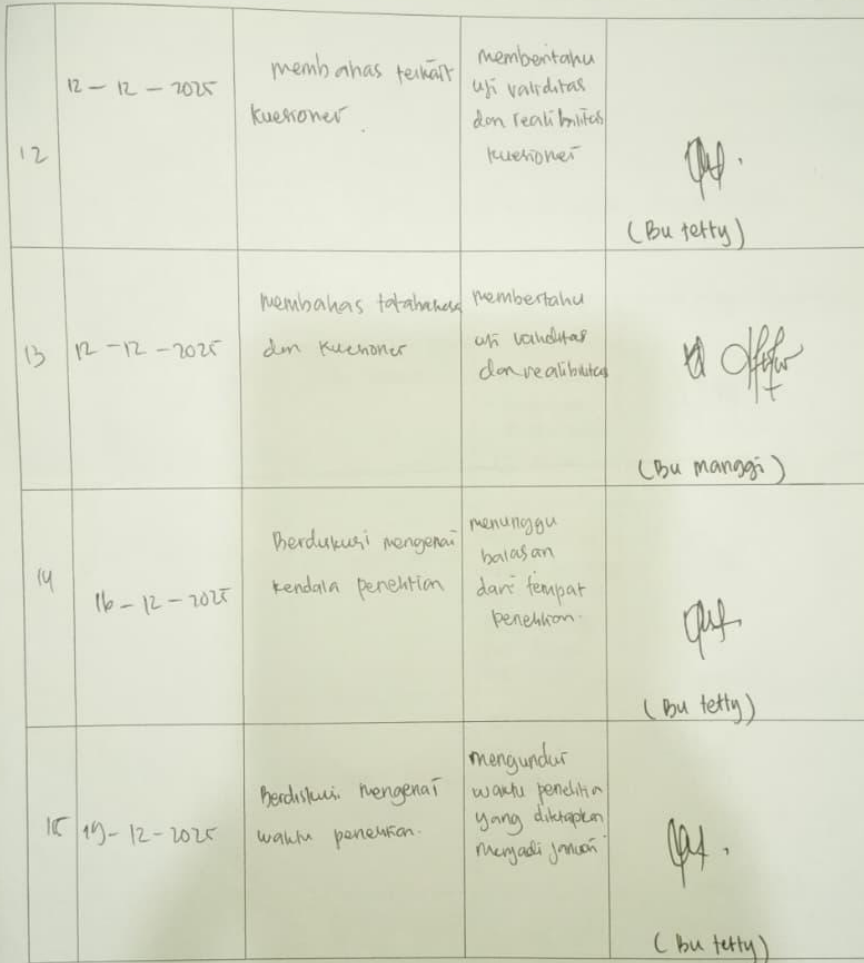 12
12 - 12 - 2025
membahas terkait
kuesioner.
memberitahu
uji validitas
dan realibilitas
kuesioner
(Bu tetty)
13
12 - 12 - 2025
membahas tatabahasa
dan kuesioner
membertahu
uji validitas
dan realibilitas
(Bu manggi)
14
16 - 12 - 2025
Berdiskusi mengenai
kendala penelitian
menunggu
balasan
dari tempat
penelitian.
(Bu tetty)
15
19 - 12 - 2025
Berdiskusi mengenai
waktu penelitian.
mengundur
waktu penelitian
yang ditetapkan
menjadi januari
(Bu tetty)